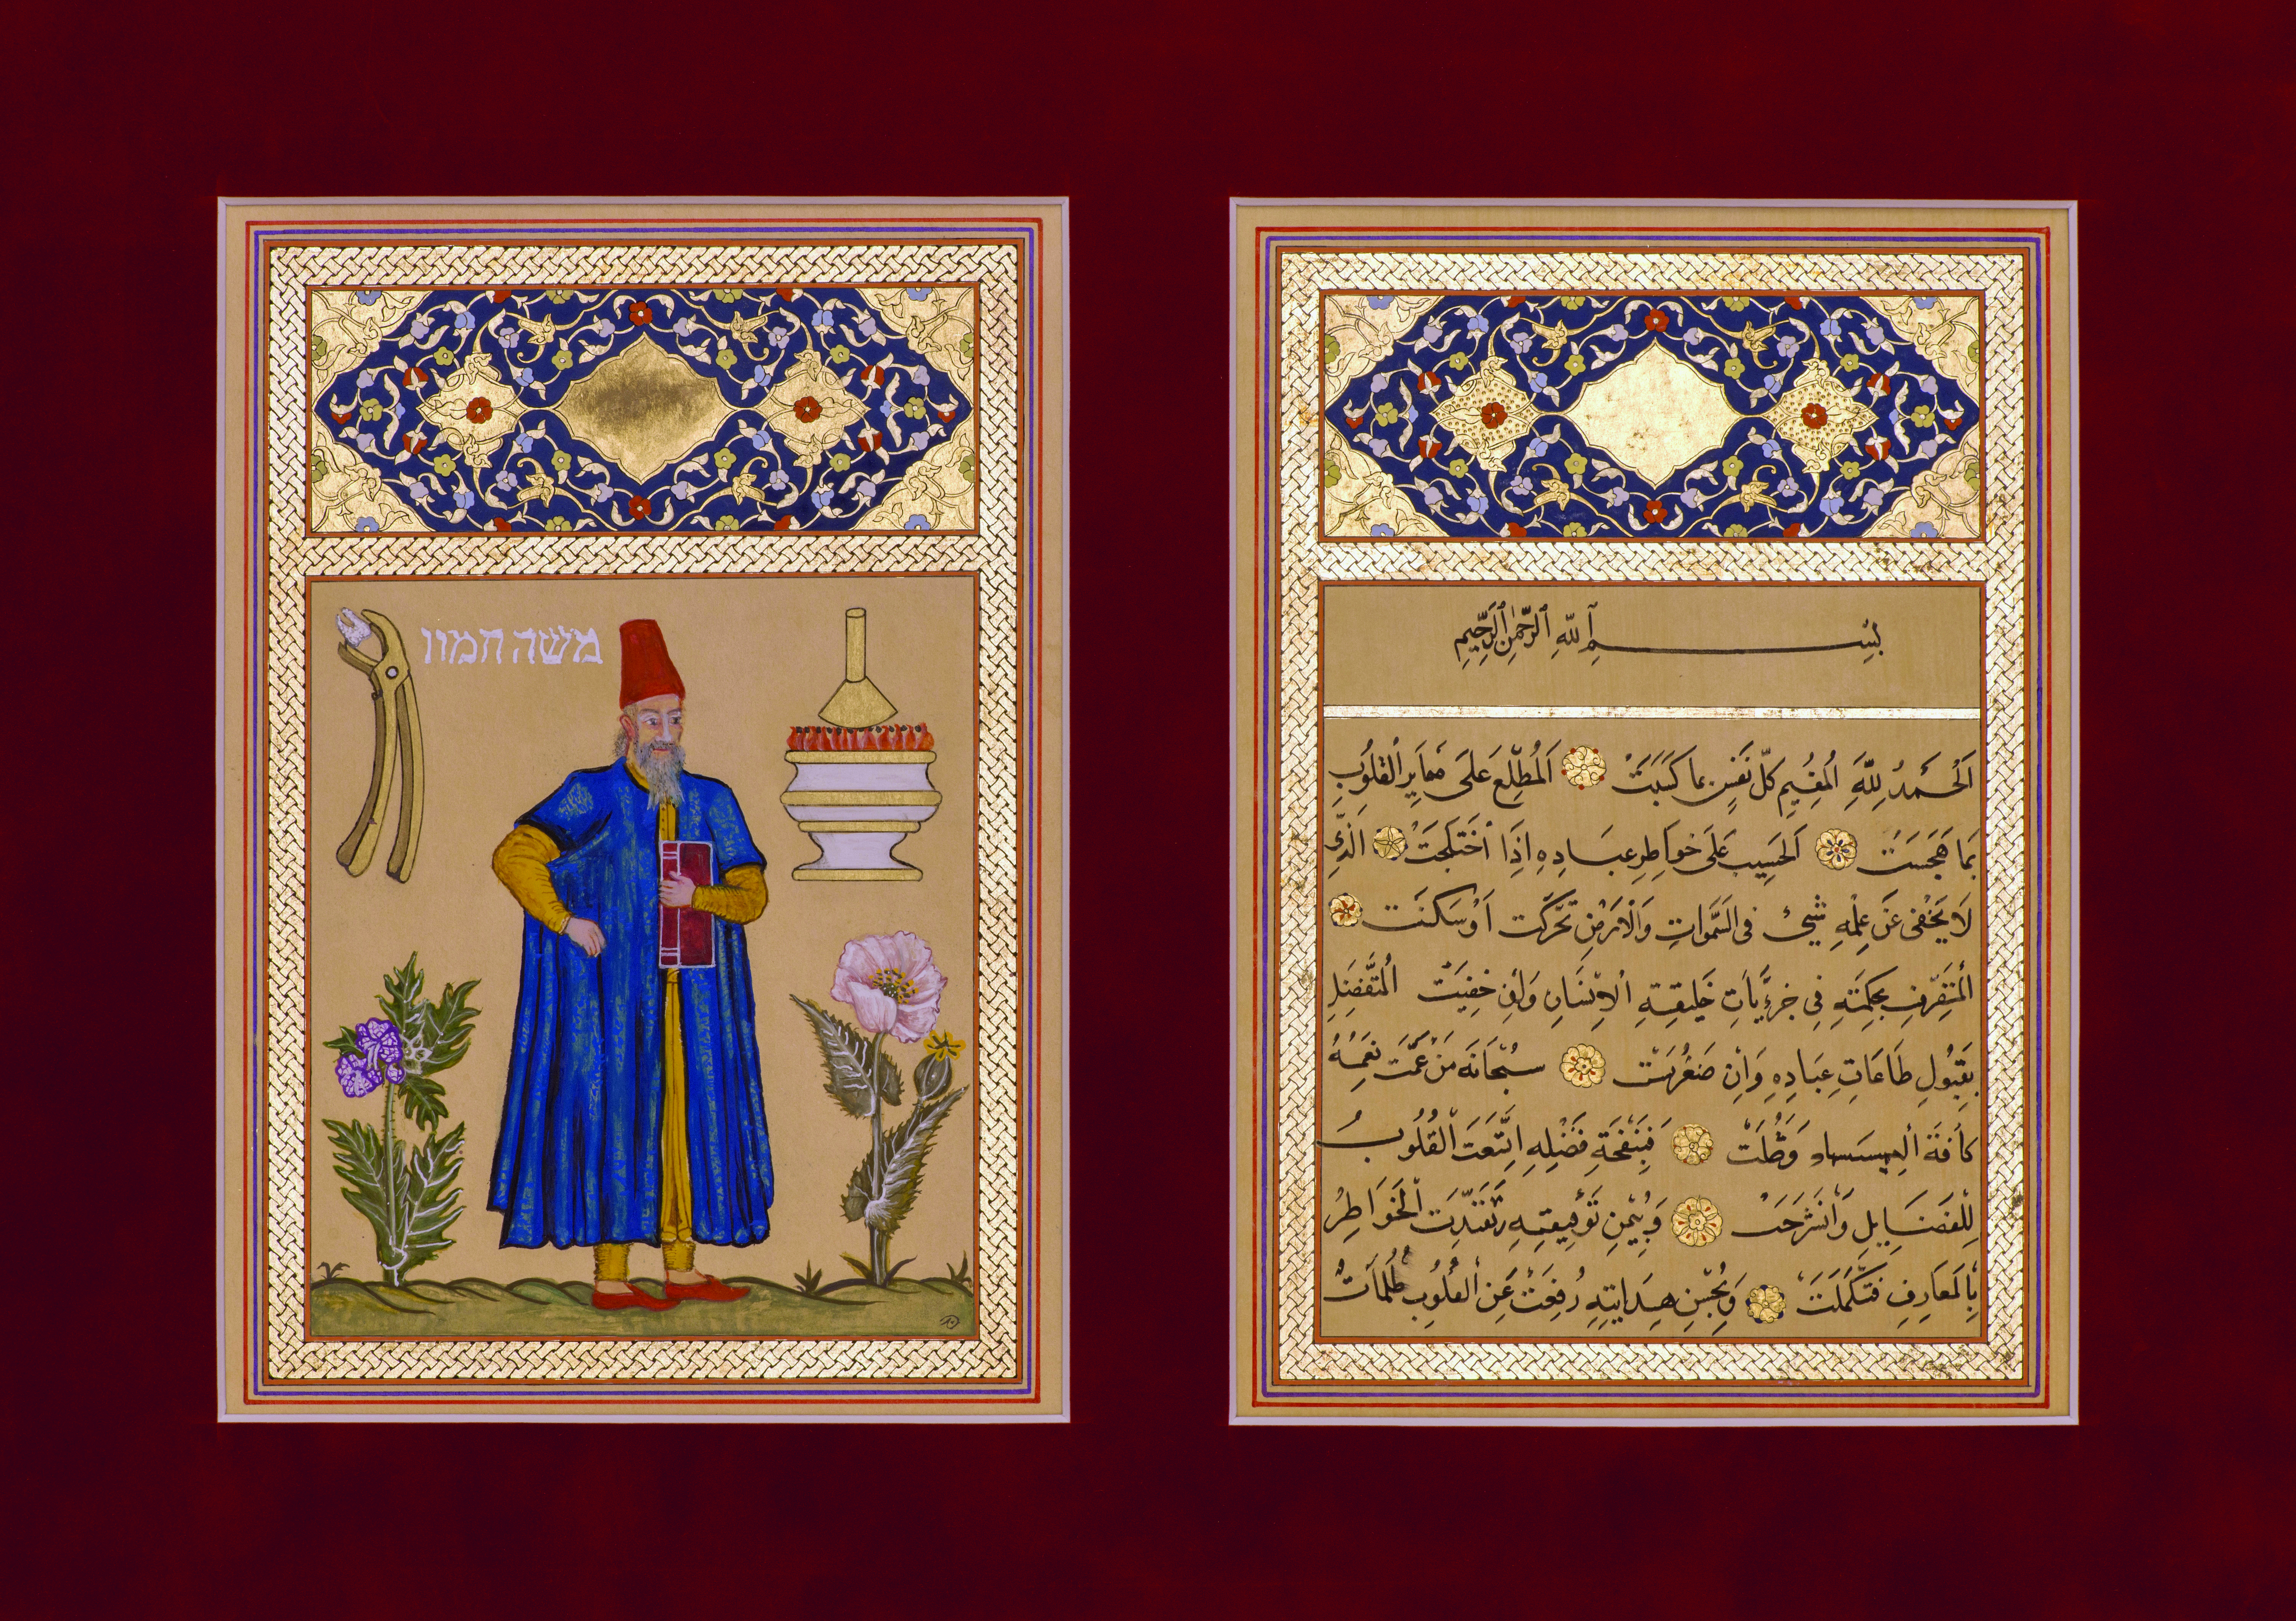 משה חמון
بِسْمِ ٱللّٰهِ ٱلرَّحْمٰنِ ٱلرَّحِيمِ
اَلْحَمْدُ لِلّٰهِ اَلْمُقِيمِ كُلِّ نَفْسٍ بِمَا كَسَبَتْ اَلْمُطَّلِعِ عَلَى القُلُوبِ
بِمَا هَجَسَتْ اَلْحَسِيبِ عَلَى خَوَاطِرِ عِبَادِهِ اِذَا اخْتَلَجَتْ الَّذِي
لَا يَخْفَى عَنْ عِلْمِهِ شَيْءٌ فِى السَّمَوَاتِ وَالْاَرْضِ تَحَرَّكَت اَوْ سَكَنَت
بِحِكْمَتِهِ فِي خَلِيقَتِهِ الْاِنْسَانِ وَاِنْ خَفِيَتْ الْمُتَفَضِّلِ
بِقَبُولِ طَاعَاتِ عِبَادِهِ وَاِنْ صَغُرَتْ سُبْحَانَهُ مَنْ عَمَّت نِعَمُهُ
كَافَةَ فَبِنَفْحَةِ فَضْلِهِ اتَّسَعَتَ الْقُلُوبُ
لِلْفَضَايِلِ وَانْشَرَحَتْ وَبِيُمْنِ تَوْفِيقِهِ الْخَوَاطِرُ
بِالْمَعَارِفِ فَتَكَمَّلَتْ وَبِحُسْنِ هِدَايَتِهِ رُفِعَتْ عَنِ الْقُلُوبِ ظُلُمَاتُ